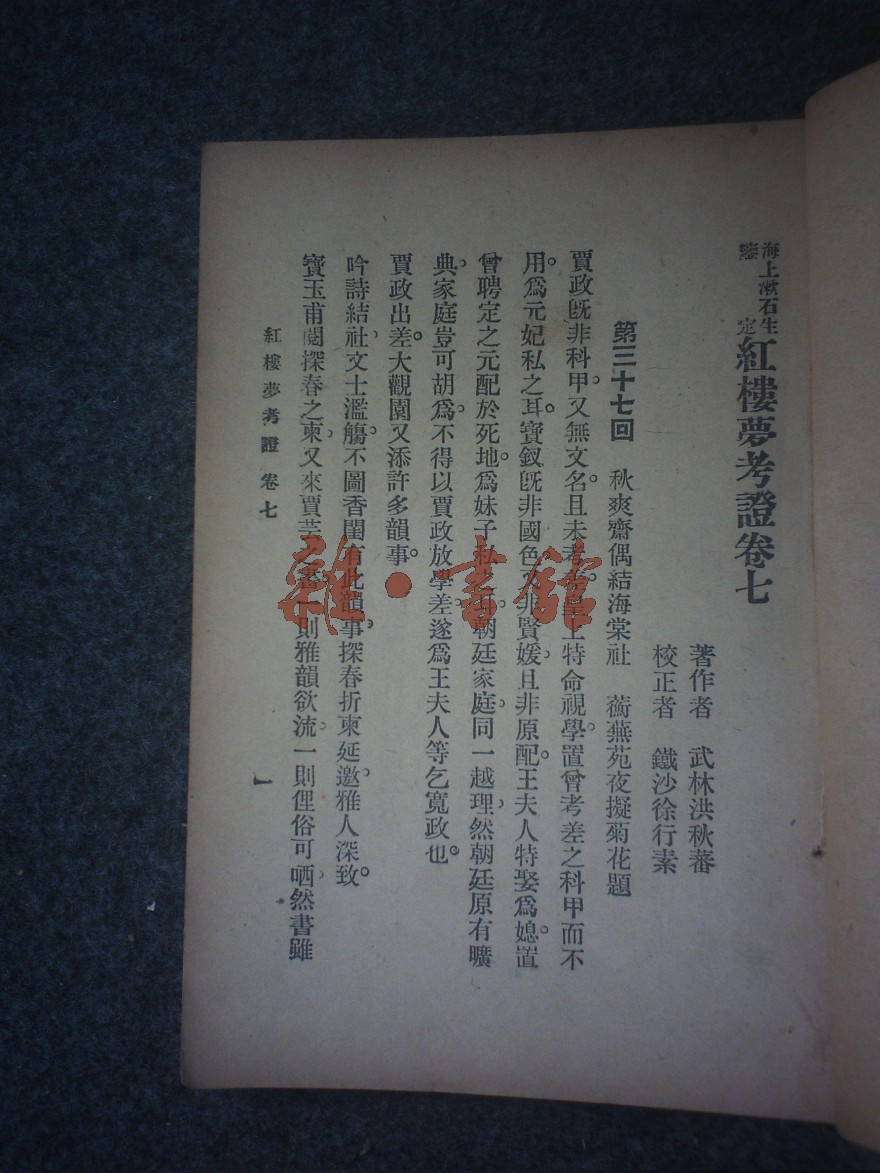 海上漱石生鑒定
紅樓夢考證卷七
著作者　武林洪秋蕃
校正者　鐵沙徐行素
第三十七回　秋爽齋偶結海棠社　蘅蕪苑夜擬菊花題
賈政旣非科甲。又無文名。且未考差。皇上特命視學。置曾考差之科甲而不
用。爲元妃私之耳。寶釵旣非國色。又非賢媛。且非原配。王夫人特娶爲媳。置
曾聘定之元配於死地。爲妹子私之耳。朝廷家庭。同一越理。然朝廷原有曠
典。家庭豈可胡爲。不得以賈政放學差。遂爲王夫人等乞寬政也。
賈政出差。大觀園又添許多韻事。
吟詩結社。文士濫觴。不圖香閨有此韻事。探春折柬延邀。雅人深致。
寶玉甫閱探春之柬。又來賈芸之書。一則雅韻欲流。一則俚俗可哂。然書雖
紅樓夢考證　卷七
一
雜·書館